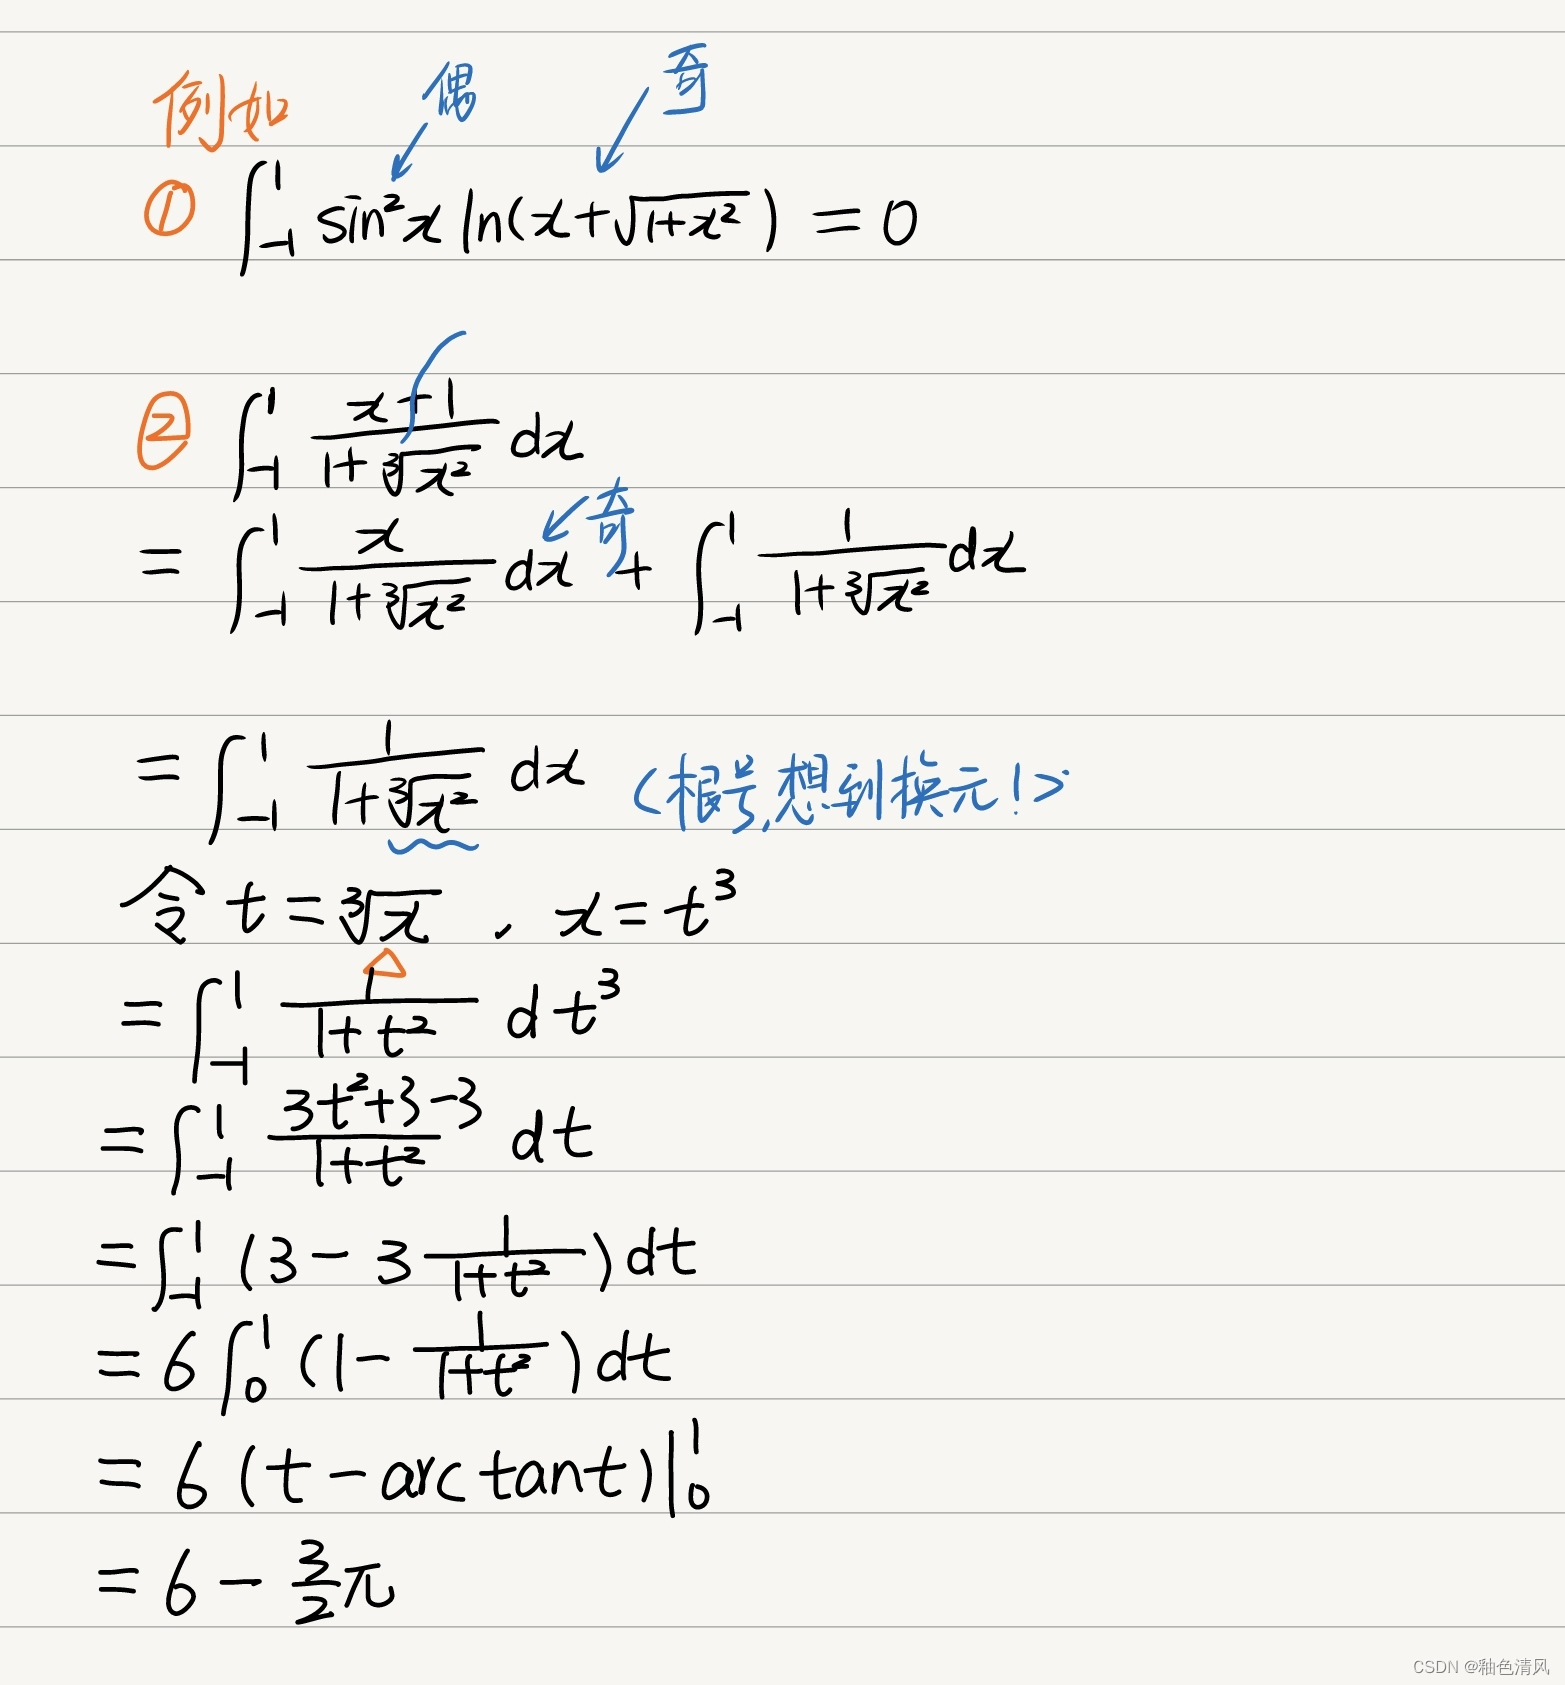 例如 偶 奇
① ∫_{-1}^{1} sin²x ln(x+√(1+x²)) = 0
② ∫_{-1}^{1} (x+1)/(1+∛(x²)) dx
= ∫_{-1}^{1} x/(1+∛(x²)) dx 奇 + ∫_{-1}^{1} 1/(1+∛(x²)) dx
= ∫_{-1}^{1} 1/(1+∛(x²)) dx (根号,想到换元!)
令 t=∛x , x=t³
= ∫_{-1}^{1} 1/(1+t²) dt³
= ∫_{-1}^{1} (3t²+3-3)/(1+t²) dt
= ∫_{-1}^{1} (3-3 1/(1+t²)) dt
= 6∫_{0}^{1} (1-1/(1+t²)) dt
= 6(t-arctant)|_{0}^{1}
= 6-3/2π
CSDN @釉色清风